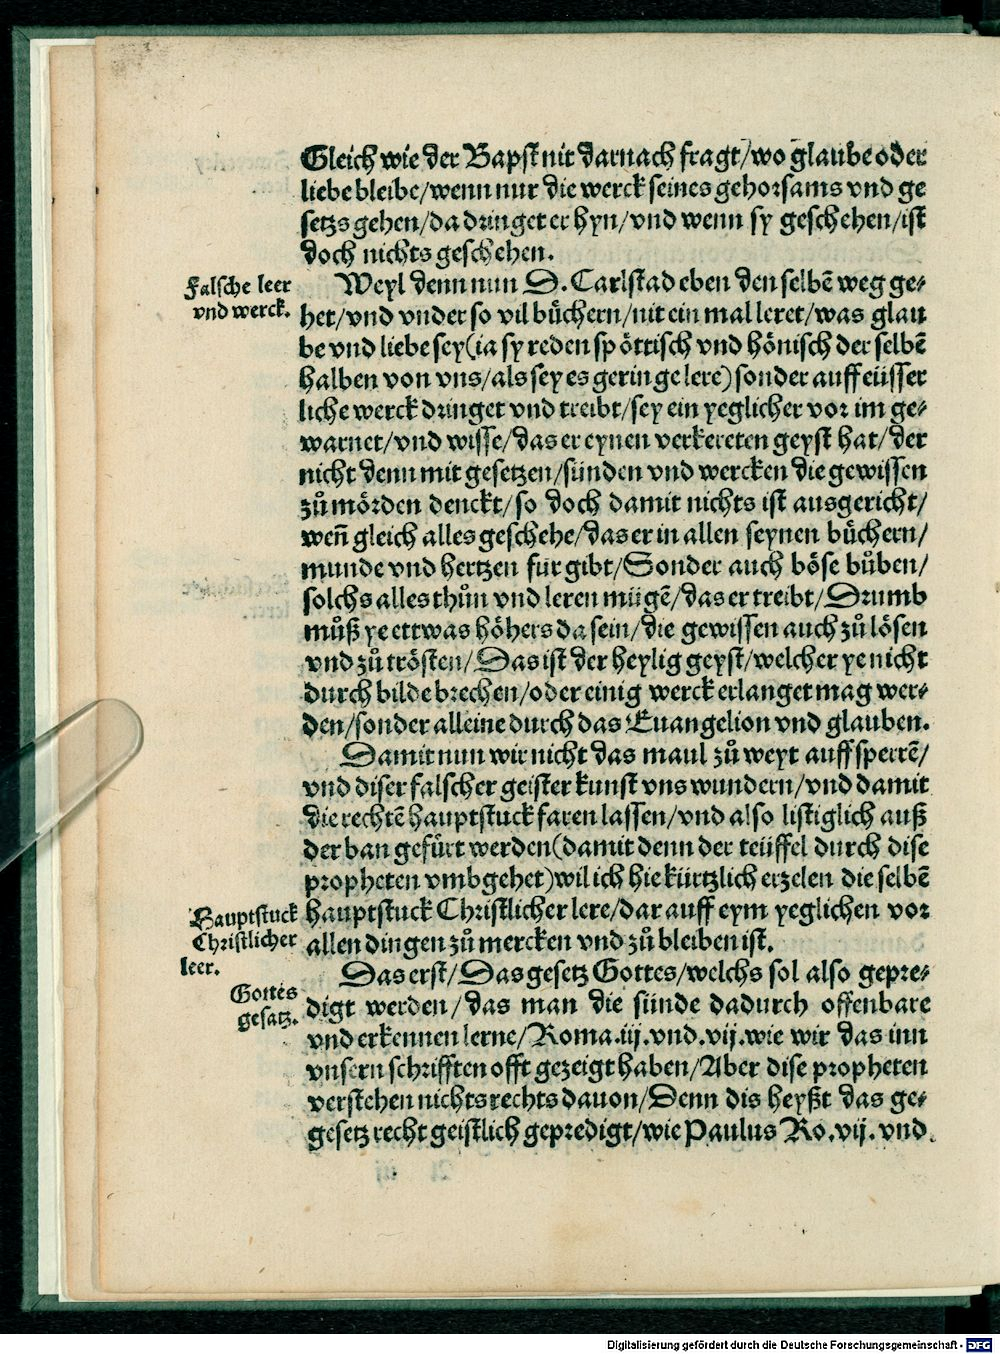 Gleich wie der Bapst nit darnach fragt/wo glaube oder
liebe bleibe/wenn nur die werck seines gehorsams vnd ge
setzs gehen/da dringet er hyn/vnd wenn sy geschehen/ist
doch nichts geschehen.
Falsche leer
vnd werck.
Weyl denn nun D. Carlstad eben den selbē weg ge-
het/vnd vnder so vil bůchern/nit ein mal leret/was glau
be vnd liebe sey(ia sy reden spöttisch vnd hönisch der selbē
halben von vns/als sey es geringe lere)sonder auff eüsser
liche werck dringet vnd treibt/sey ein yeglicher vor im ge-
warnet/vnd wisse/das er eynen verkereten geyst hat/der
nicht denn mit gesetzen/sünden vnd wercken die gewissen
zů mörden denckt/so doch damit nichts ist ausgericht/
wen̄ gleich alles geschehe/das er in allen seynen bůchern/
munde vnd hertzen für gibt/Sonder auch böse bůben/
solchs alles thůn vnd leren mügē/das er treibt/Drumb
můß ye ettwas höhers da sein/die gewissen auch zů lösen
vnd zů trösten/Das ist der heylig geyst/welcher ye nicht
durch bilde brechen/oder einig werck erlanget mag wer-
den/sonder alleine durch das Euangelion vnd glauben.
Damit nun wir nicht das maul zů weyt auffsperrē/
vnd diser falscher geister kunst vns wundern/vnd damit
die rechtē hauptstuck faren lassen/vnd also listiglich auß
der ban gefürt werden(damit denn der teüffel durch dise
propheten vmbgehet)wil ich hie kürtzlich erzelen die selbē
Hauptstuck
Christlicher
leer.
hauptstuck Christlicher lere/darauff eym yeglichen vor
allen dingen zů mercken vnd zů bleiben ist.
Gottes
gesatz.
Das erst/Das gesetz Gottes/welchs sol also gepre-
digt werden/das man die sünde dadurch offenbare
vnd erkennen lerne/Roma.iij.vnd.vij.wie wir das inn
vnsern schrifften offt gezeigt haben/Aber dise propheten
verstehen nichts rechts dauon/Denn dis heyßt das ge-
gesetz recht geistlich gepredigt/wie Paulus Ro.vij.vnd.
Digitalisierung gefördert durch die Deutsche Forschungsgemeinschaft - DFG